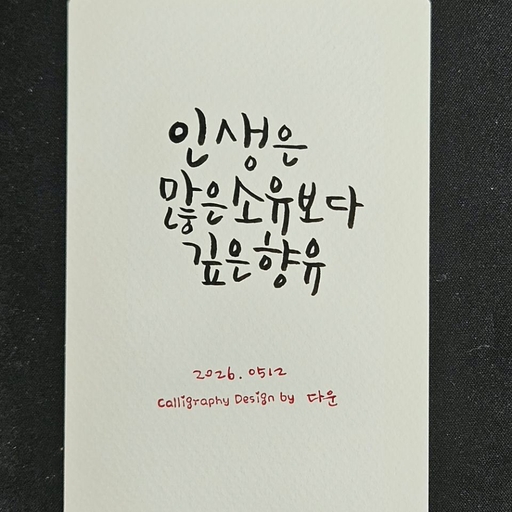 인생은
많은소유보다
깊은향유
2026.0512
Calligraphy Design by 다운